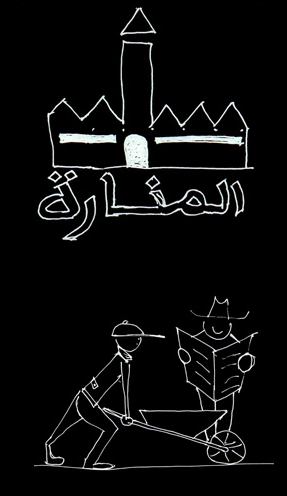 المنارة